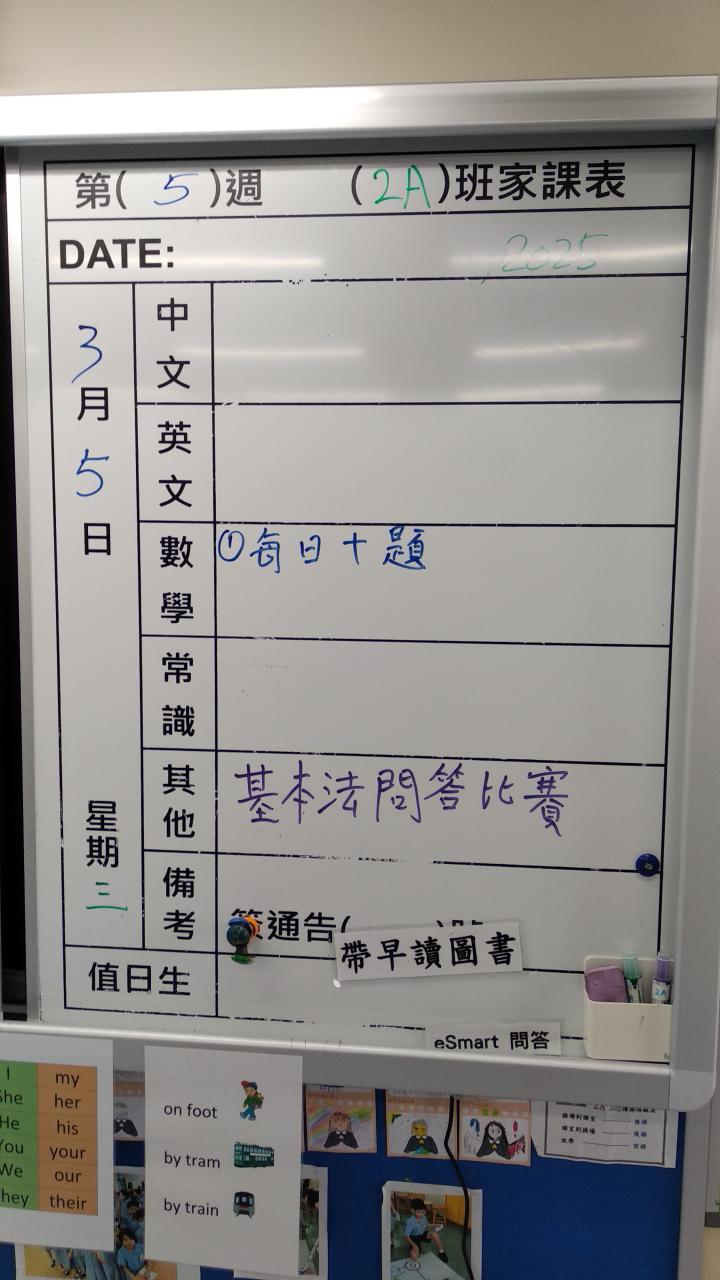 第( 5 )週 (2A)班家課表
DATE: 2025
3月5日
星期三
中文
英文
數學 ①每日十題
常識
其他 基本法問答比賽
備考 通告(
帶早讀圖書
值日生
2A
eSmart 問答
I my
She her
He his
You your
We our
They their
on foot
by tram
by train
操場到課室 後梯
課室到操場 後梯
放學 前梯